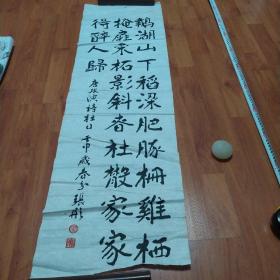 鵝湖山下稻粱肥豚柵雞栖
掩扉桑柘影斜春社散家家
得醉人歸
唐張演詩社日 壬申歲春分